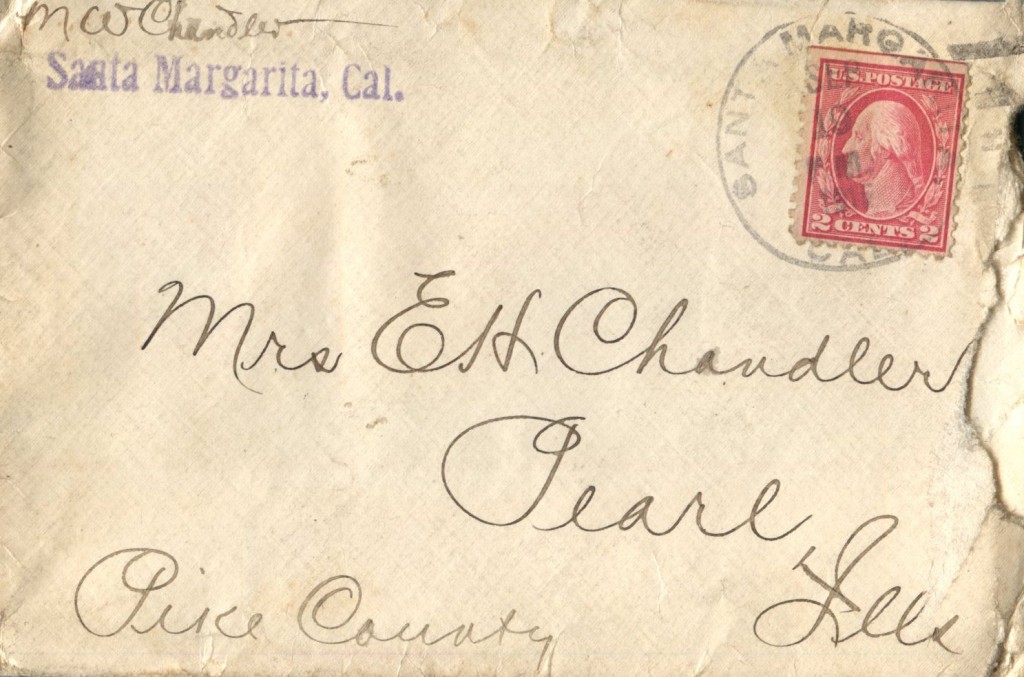 M W Chandler
Santa Margarita, Cal.
SANTA MARGARITA
SEP
10
CAL
U.S. POSTAGE
2 CENTS 2
Mrs E H Chandler
Pearl
Pike County Ills